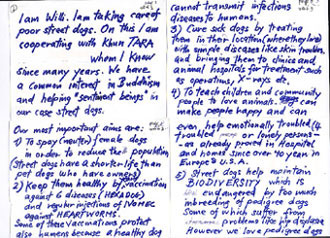 I am Willi. I am taking care of
poor street dogs. On this I am
cooperating with Khun TARA
whom I Know
since many years. We have
a common interest in Buddhism
and helping "sentient beings" in
our case street dogs.
Our most important aims are:
1) To spay (neuter) female dogs
in order to reduce the population
(Street dogs have a shorter life than
pet dogs who have owners)
2) Keep them healthy by vaccination
against 6 diseases (HEXADOG)
and regular injections of IVOMEC
against HEARTWORMS.
Some of these vaccinations protect
also humans because a healthy dog
cannot transmit infectious
diseases to humans.
3) Cure sick dogs by treating
them in their location (where they live)
with simple diseases like skin troubles,
and bringing them to clinics and
animal hospitals for treatment such
as operations, X-rays etc.
4) To teach children and community
people to love animals.
can make people happy and can
even help emotionally troubled
or lonely persons -
as already proved in Hospital
and homes since over 40 years in
Europe & U.S.A.
5) Street dogs help maintain
BIODIVERSITY which is
endangered by too much
inbreeding of pedigree dogs
Some of which suffer from
problems like hip displasie
However we love pedigree dogs